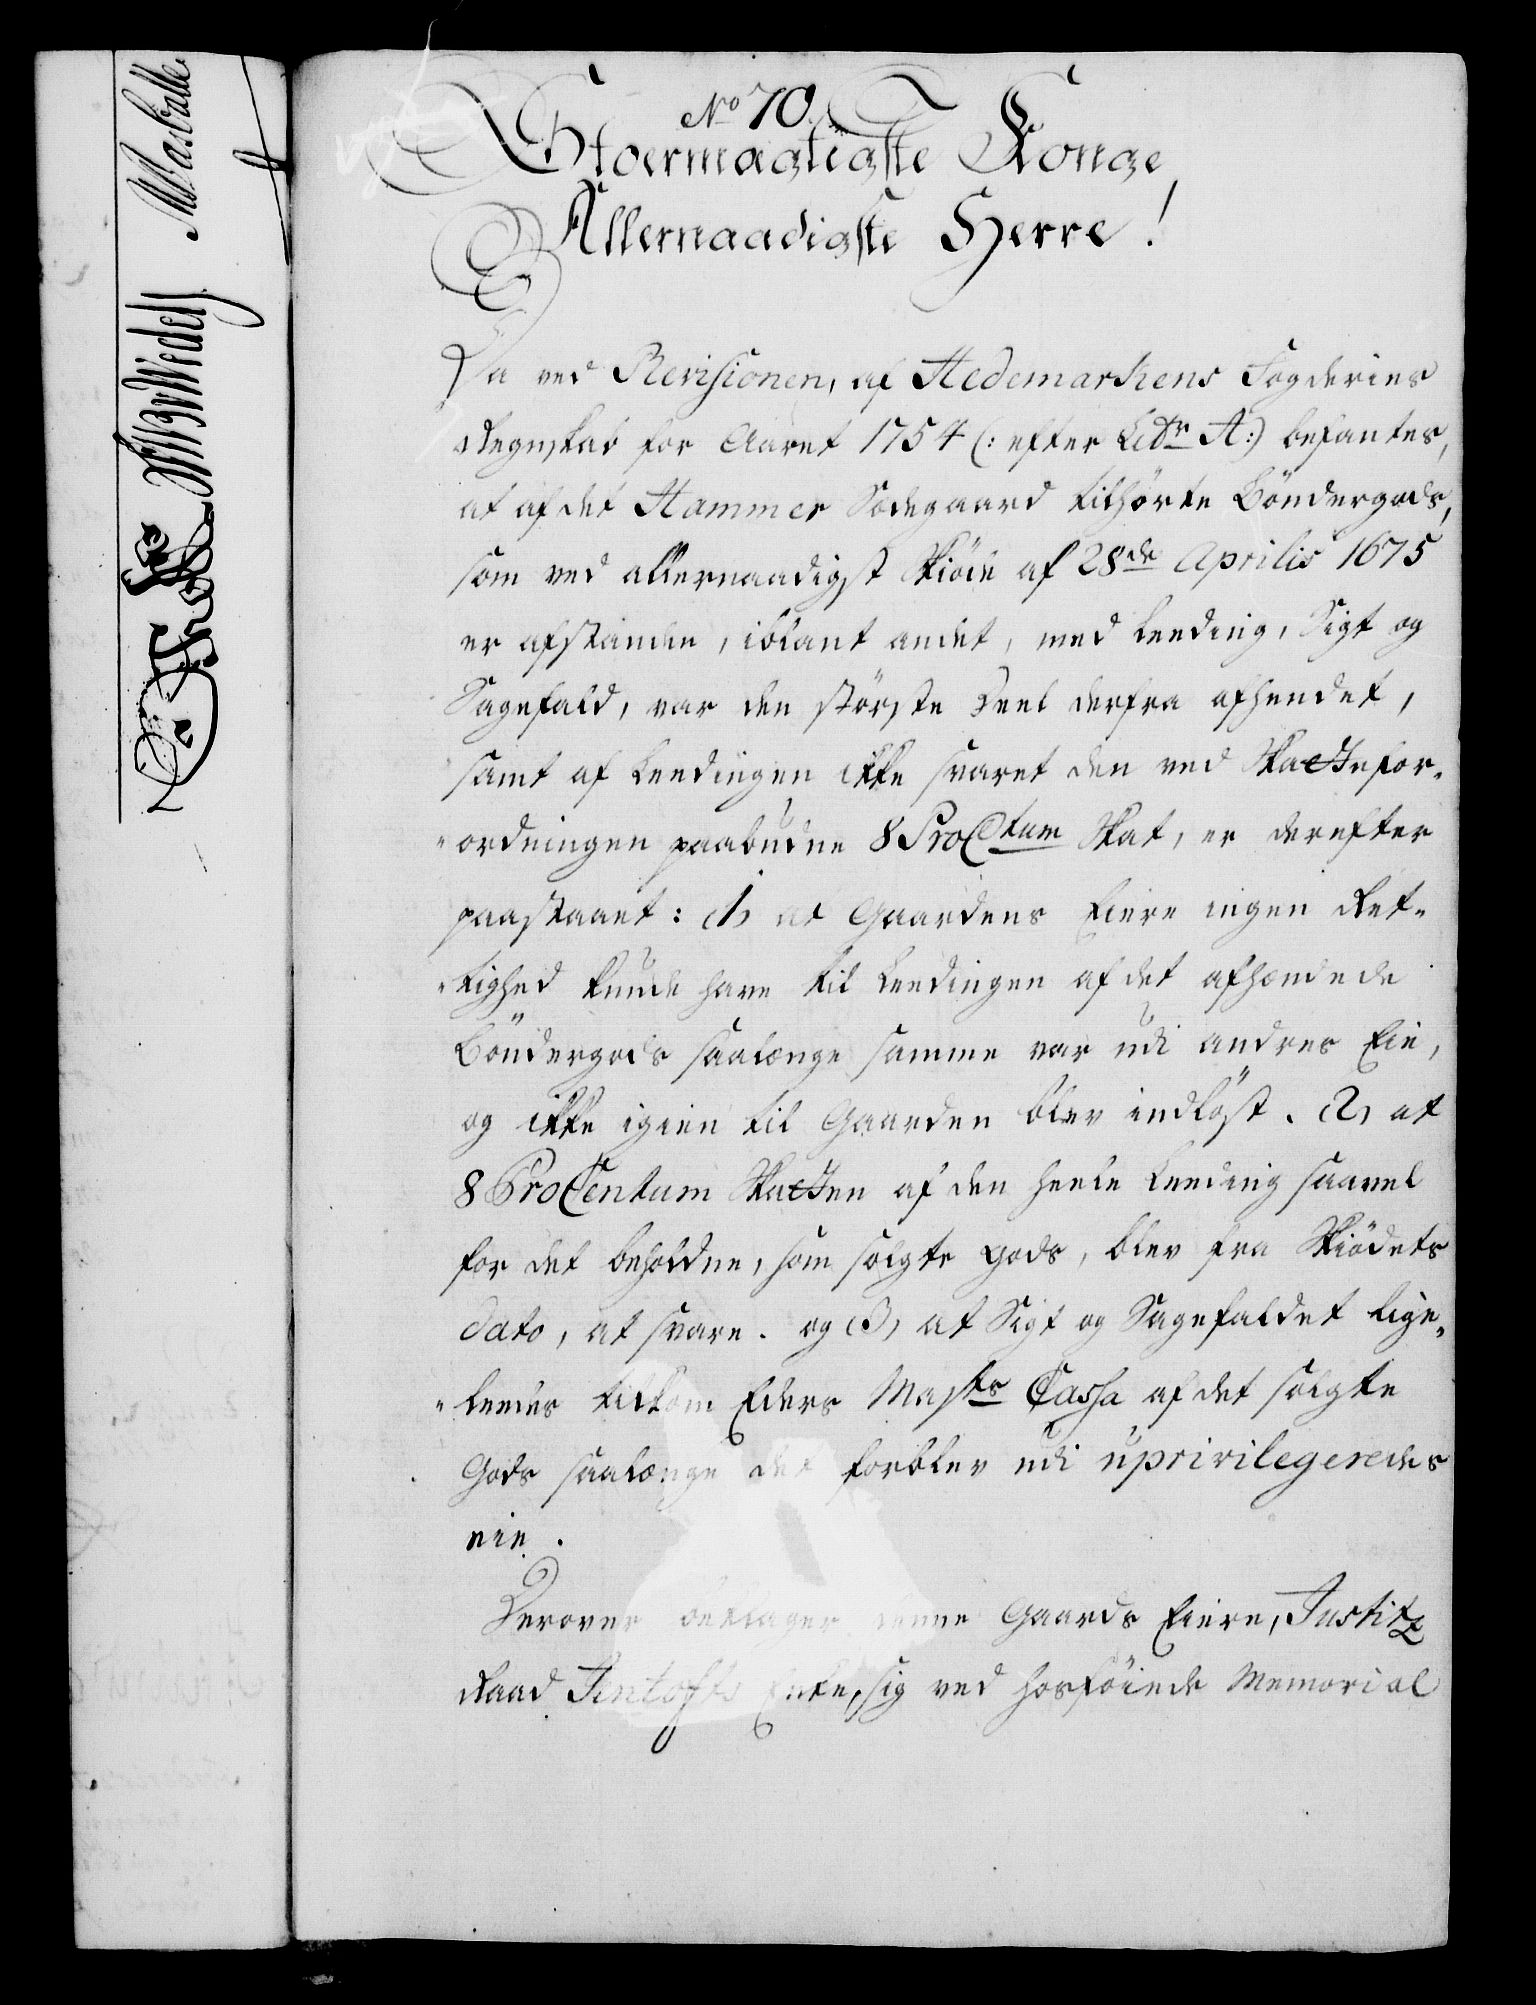 No 70.
Stoermægtigste Konge,
Allernaadigste Herre!
Da ved Revisionen, af Hedemarkens Fogderies
Regnskab for Aaret 1754 (: efter Littr A:) befantes,
at af det Hammer Sædegaard tilhørte Bøndergods,
som ved allernaadigst Skiöde af 28de Aprilis 1675
er afstanden, iblant andet, med Leeding, Sigt og
Sagefald, var den störste Deel derfra afhendet,
samt af Leedingen ikke svaret den ved Skattefor„
„ordningen paabudne 8 ProCtum Skat, er derefter
paastaaet: 1, at Gaardens Eiere ingen Ret„
„tighed kunde have til Leedingen af det afhændede
Böndergods saalænge samme var udi andres Eie,
og ikke igien til Gaarden blev indlöst. 2, at
8 ProCentum Skatten af den heele Leeding saavel
for det beholdne, som solgte Gods, blev fra Skiödets
dato, at svare. og 3, at Sigt og Sagefaldet lige„
„leedes tilkom Eders Majts Cassa af det solgte
Gods saalænge det forblev udi uprivilegeredes
eie.
Derover beklager denne Gaards Eiere, Justitz
Raad Jentofts Enke, sig ved hosföiede Memorial